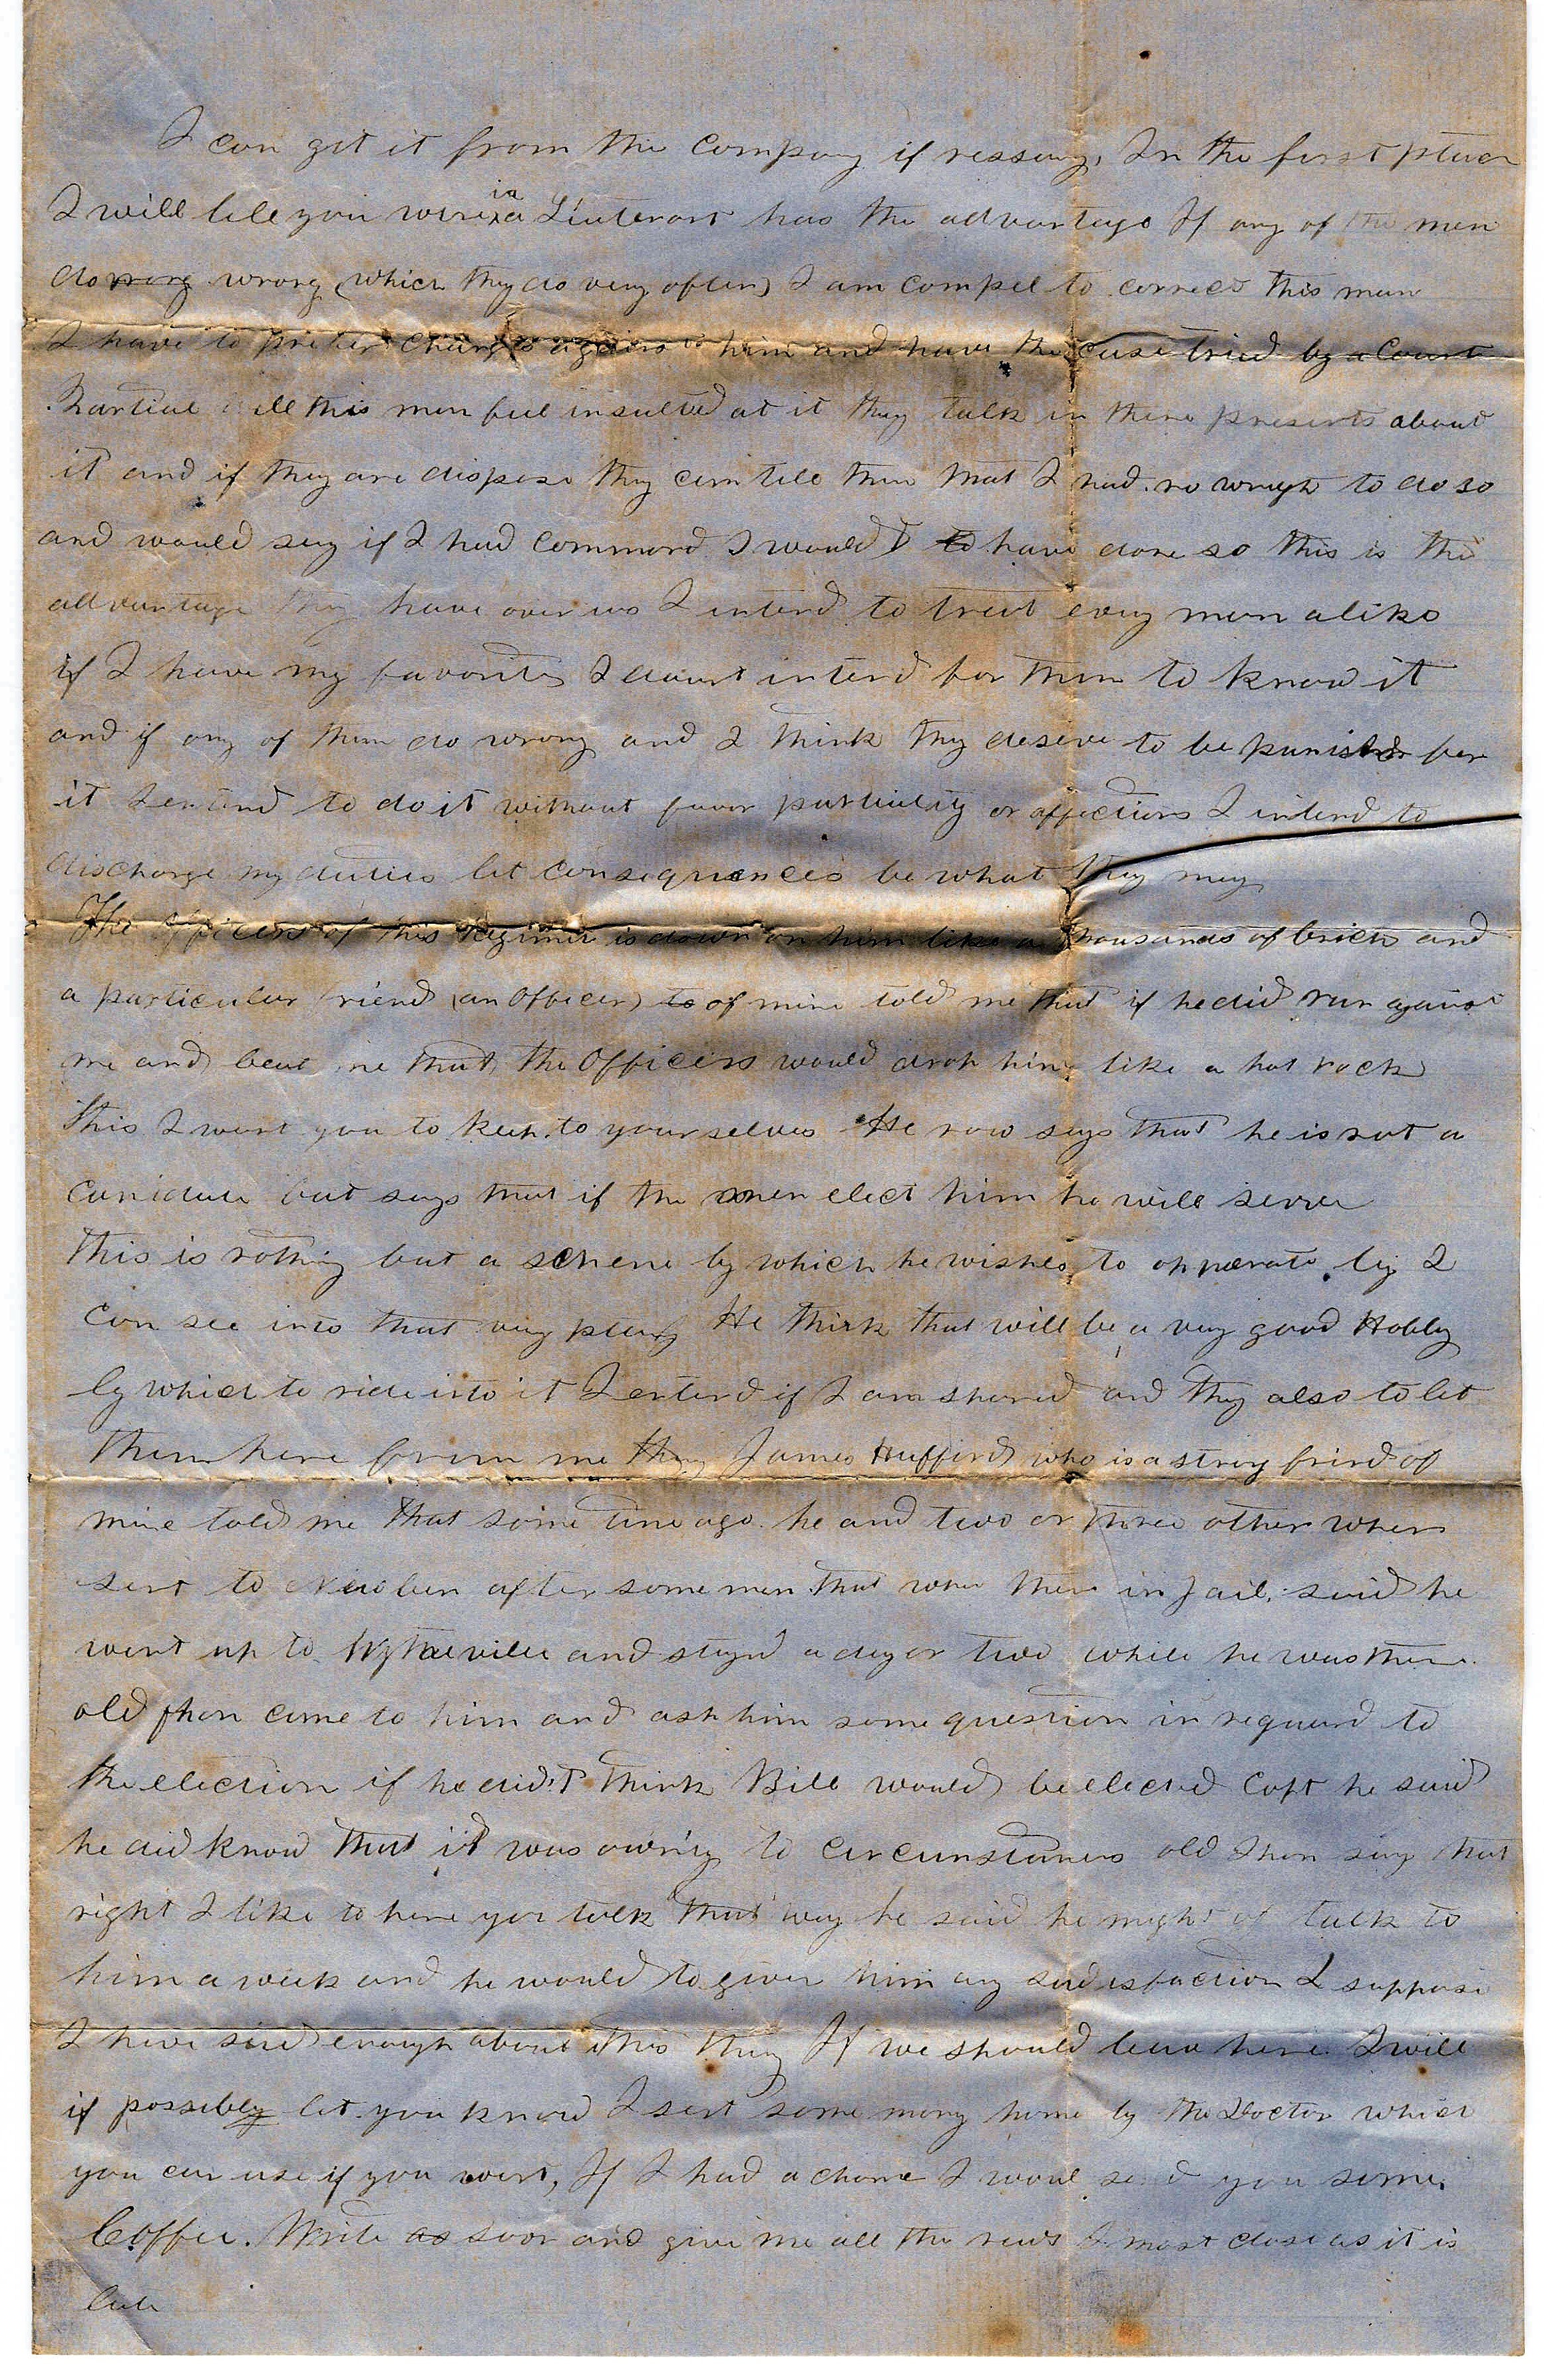 I can get it from the Company if nessary, In the first place
I will tell you were in a Lieutenant has the advantage If any of the men
do wrong wrong (which they do very often) I am compel to correct this man
I have to prefer charges against him and have the case tried by a Court
Martial all this men feel insulted at it they talk in there presents about
it and if they are dispose they can tell them that I had no wright to do so
and would say if I had command I would't to have done so this is the
advantage they have over us I intend to treat every man alike
if I have my favorites I dount intend for them to know it
and if any of them do wrong and I think they deserve to be punished for
it I entend to do it without favor partiality or affections I intend to
discharge my duties let consequences be what they may
The Officers of this Regiment is down on him like a thousands of brick and
a particular friend (an Officer) to of mine told me that if he did run against
me and beat me that the Officers would drop him like a hot rock
this I want you to keep to yourselves He now says that he is not a
canidate but says that if the men elect him he will serve
this is nothing but a scheme by which he wishes to opperate by I
can see into that very plainly He think that will be a very good Hobby
by which to ride into it I entend if I am spared and they also to let
them here from me they James Hufford who is a strong frind of
mine told me that some time ago he and two or three other wher
sent to Newbern after some men that wher there in Jail, said he
went up to Wytheville and stayd a day or two while he was there
old Jhon came to him and ask him some question in reguard to
the election if he did't think Bill would be elected Capt he said
he did know that it was owing to circumstances old Jhon say that
right I like to here you talk that way he said he might of talk to
him a week and he would to given him any sadisfaction I suppose
I have said enough about this thing If we should leave here I will
if possibly let you know I sent some mony home by the Doctor which
you can use if you want, If I had a chance I woul send you some
Coffee. Write as soon and give me all the news I most close as it is
late